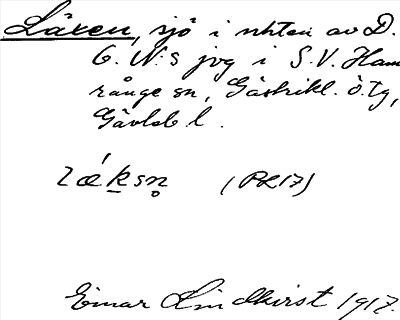 Laxen, sjö i nhten av D.
G. N:s jvg i S.V. Ham
rånge sn, Gästrikl. ö. tg,
Gävleb l.
(PR17)
Einar Lindkvist 1917.